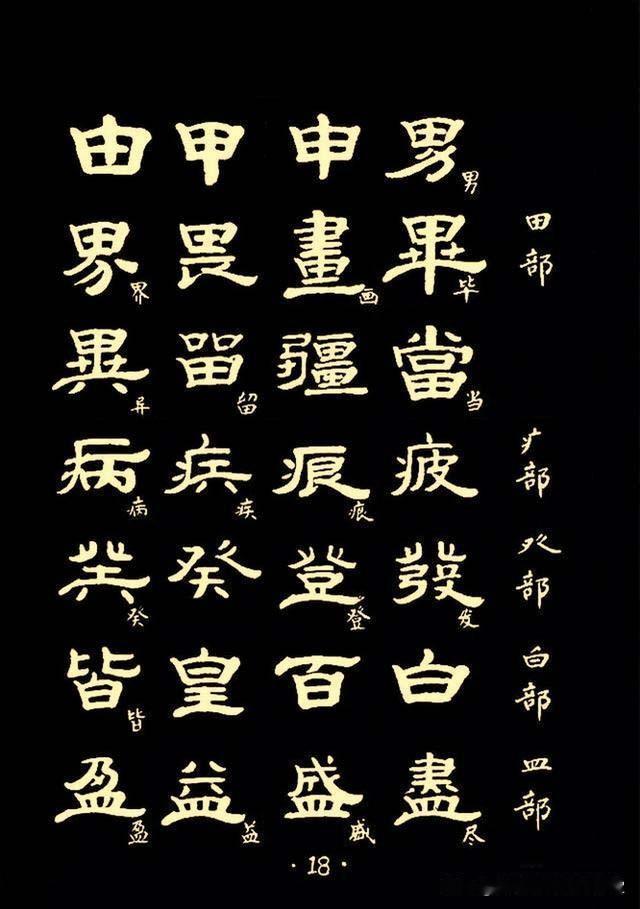 由 甲 申 男男
田部
界界 畏 畫画 畢毕
異异 留留 疆 當当
病病 疾疾 痕痕 疲
疒部
癸癸 癸 登登 發发
癶部
皆皆 皇 百 白
白部
盈盈 益益 盛盛 盡尽
皿部
·18·